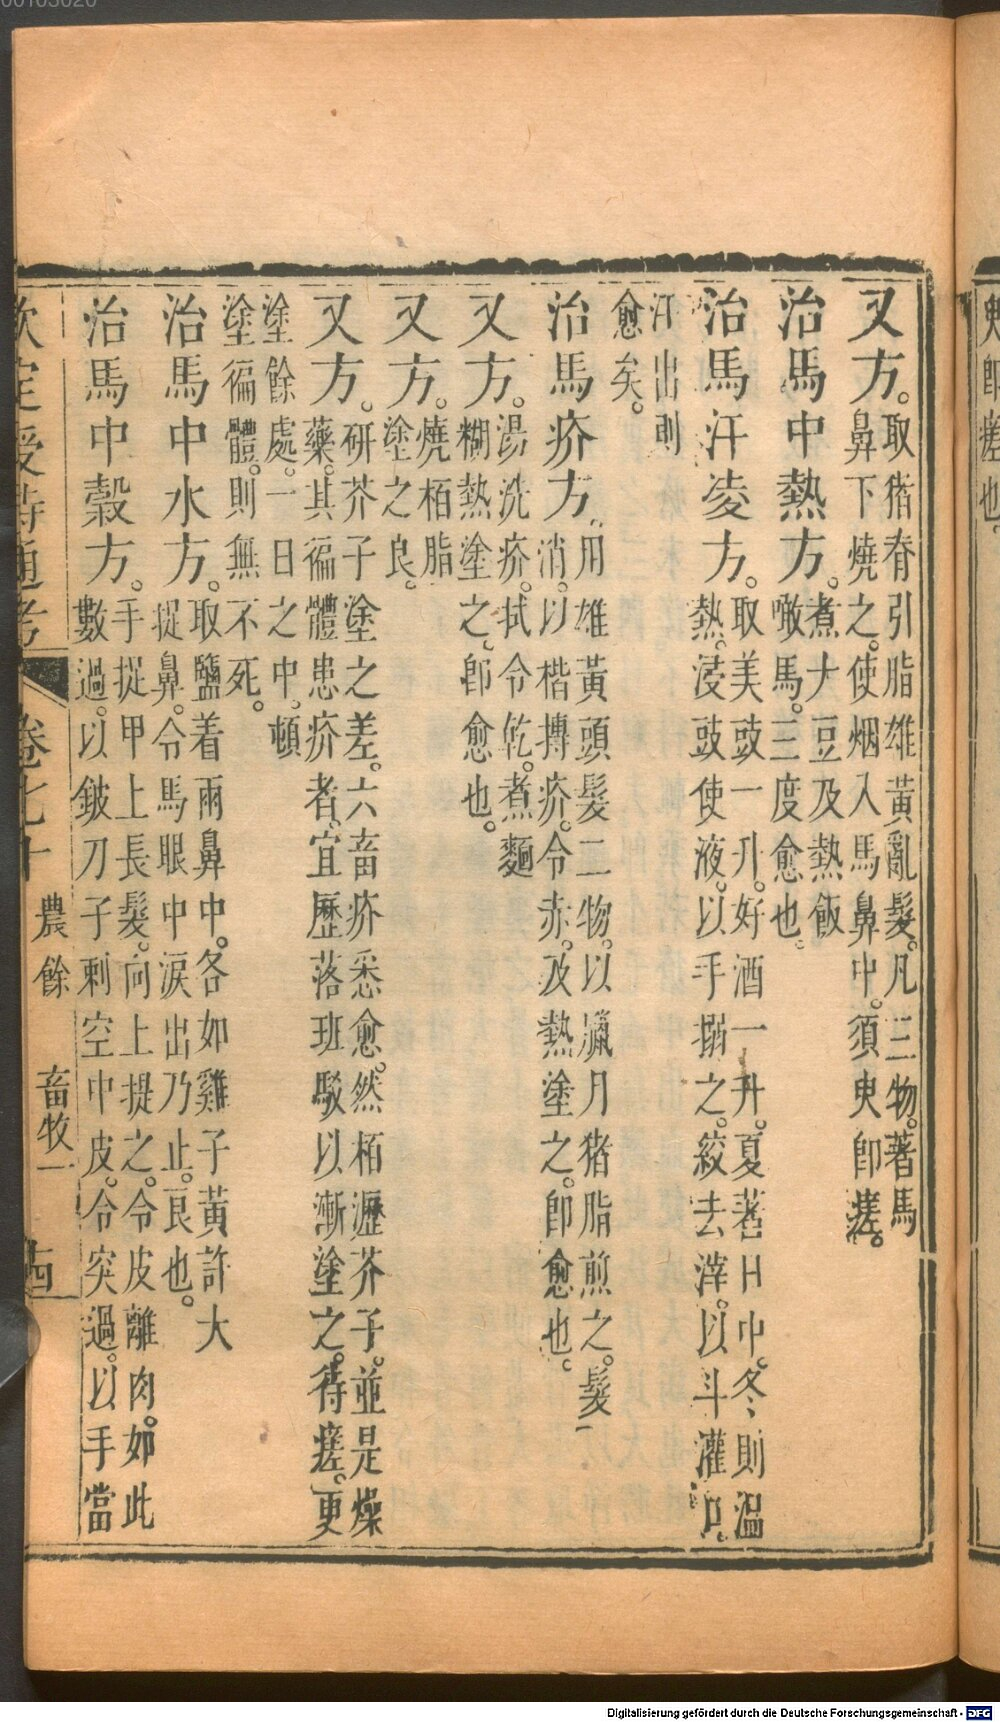 臾卽瘥也。
又方。取猪脊引脂雄黃亂髮。凡三物。著馬
鼻下燒之。使烟入馬鼻中。須臾卽瘥。
治馬中熱方。煮大豆及熱飯
噉馬。三度愈也。
治馬汗凌方。取美豉一升。好酒一升。夏著日中。冬則溫
熱。浸豉使液。以手搦之。絞去滓。以斗灌口。
汗出則
愈矣。
治馬疥方。用雄黃頭髮二物。以臘月猪脂煎之。髮
消。以楷摶疥。令赤。及熱塗之。卽愈也。
又方。湯洗疥。拭令乾。煮麵
糊熱塗之。卽愈也。
又方。燒栢脂
塗之良。
又方。研芥子塗之差。六畜疥悉愈。然栢瀝芥子。並是燥
藥。其徧體患疥者。宜歷落班駁以漸塗之。待瘥。更
塗餘處。一日之中。頓
塗徧體。則無不死。
治馬中水方。取鹽着兩鼻中。各如雞子黃許大
捉鼻。令馬眼中淚出乃止。良也。
治馬中穀方。手捉甲上長髮。向上提之。令皮離肉。如此
數過。以鈹刀子刺空中皮。令突過。以手當
欽定授時通考 卷七十 農餘 畜牧一
Digitalisierung gefördert durch die Deutsche Forschungsgemeinschaft - DFG